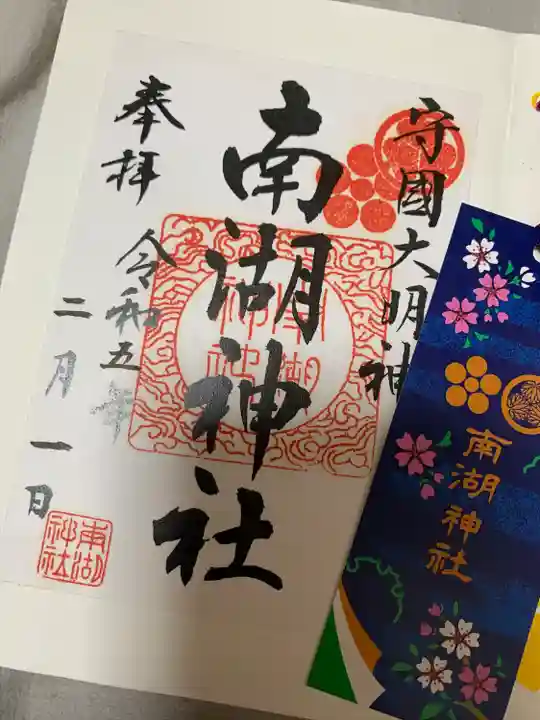 守國大明神
南湖神社
奉拝
令和五年
二月一日
南湖
神社
南湖
神社
南湖神社